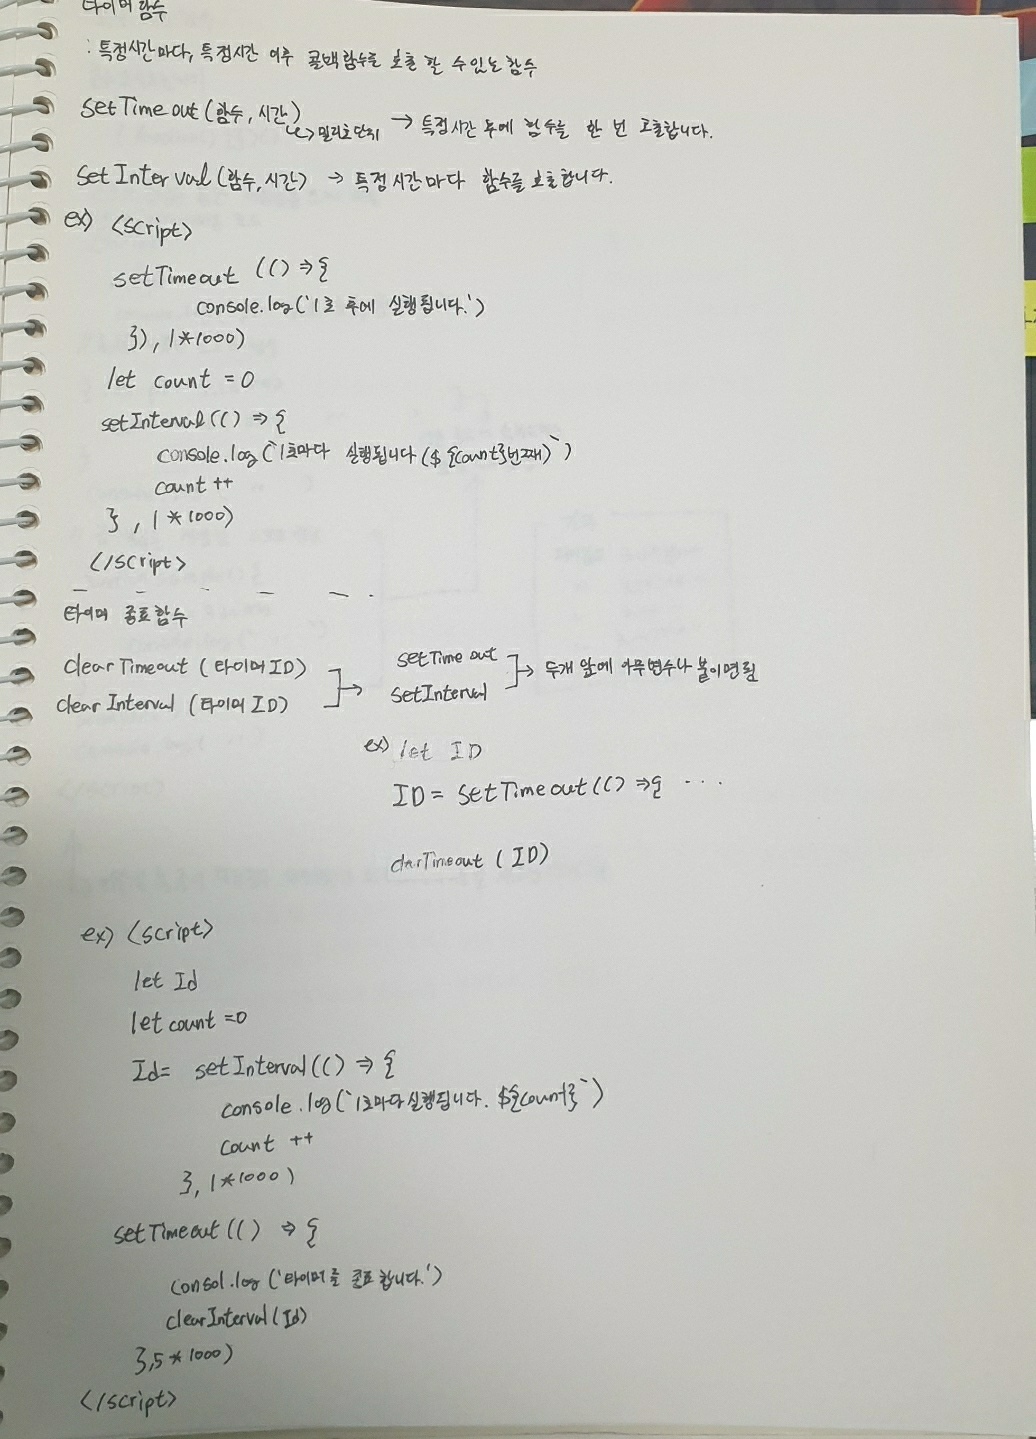 타이머 함수
: 특정시간마다, 특정시간 이후 콜백함수를 호출 할 수 있는 함수
setTimeout (함수, 시간) → 특정시간 후에 함수를 한 번 호출합니다.
↳ 밀리초단위
setInterval (함수, 시간) → 특정시간마다 함수를 호출합니다.
ex) <script>
setTimeout (() => {
console.log('1초 후에 실행됩니다.')
}), 1*1000)
let count = 0
setInterval (() => {
console.log(`1초마다 실행됩니다 (${count}번째)`)
count ++
}, 1*1000)
</script>
타이머 종료함수
clearTimeout (타이머ID)
clearInterval (타이머 ID)
→ setTimeout
setInterval
→ 두개 앞에 아무변수나 붙이면됨
ex) let ID
ID = setTimeout (() => { ...
clearTimeout (ID)
ex) <script>
let Id
let count = 0
Id = setInterval (() => {
console.log(`1초마다 실행됩니다. ${count}`)
count ++
}, 1*1000)
setTimeout (() => {
consol.log ('타이머를 종료합니다.')
clearInterval (Id)
}, 5*1000)
</script>